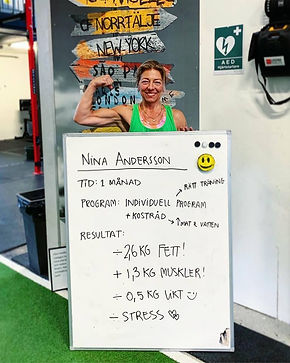 NORRTÄLJE
NEW YORK
SÃO P
LONDON
AED
Hjärtstartare
NINA ANDERSSON
TID: 1 MÅNAD
RÄTT TRÄNING
PROGRAM: INDIVIDUELL PROGRAM
+ KOSTRÅD
↑MAT & VATTEN
RESULTAT:
÷ 2,6 KG FETT!
+ 1,3 KG MUSKLER!
÷ 0,5 KG VIKT
÷ STRESS